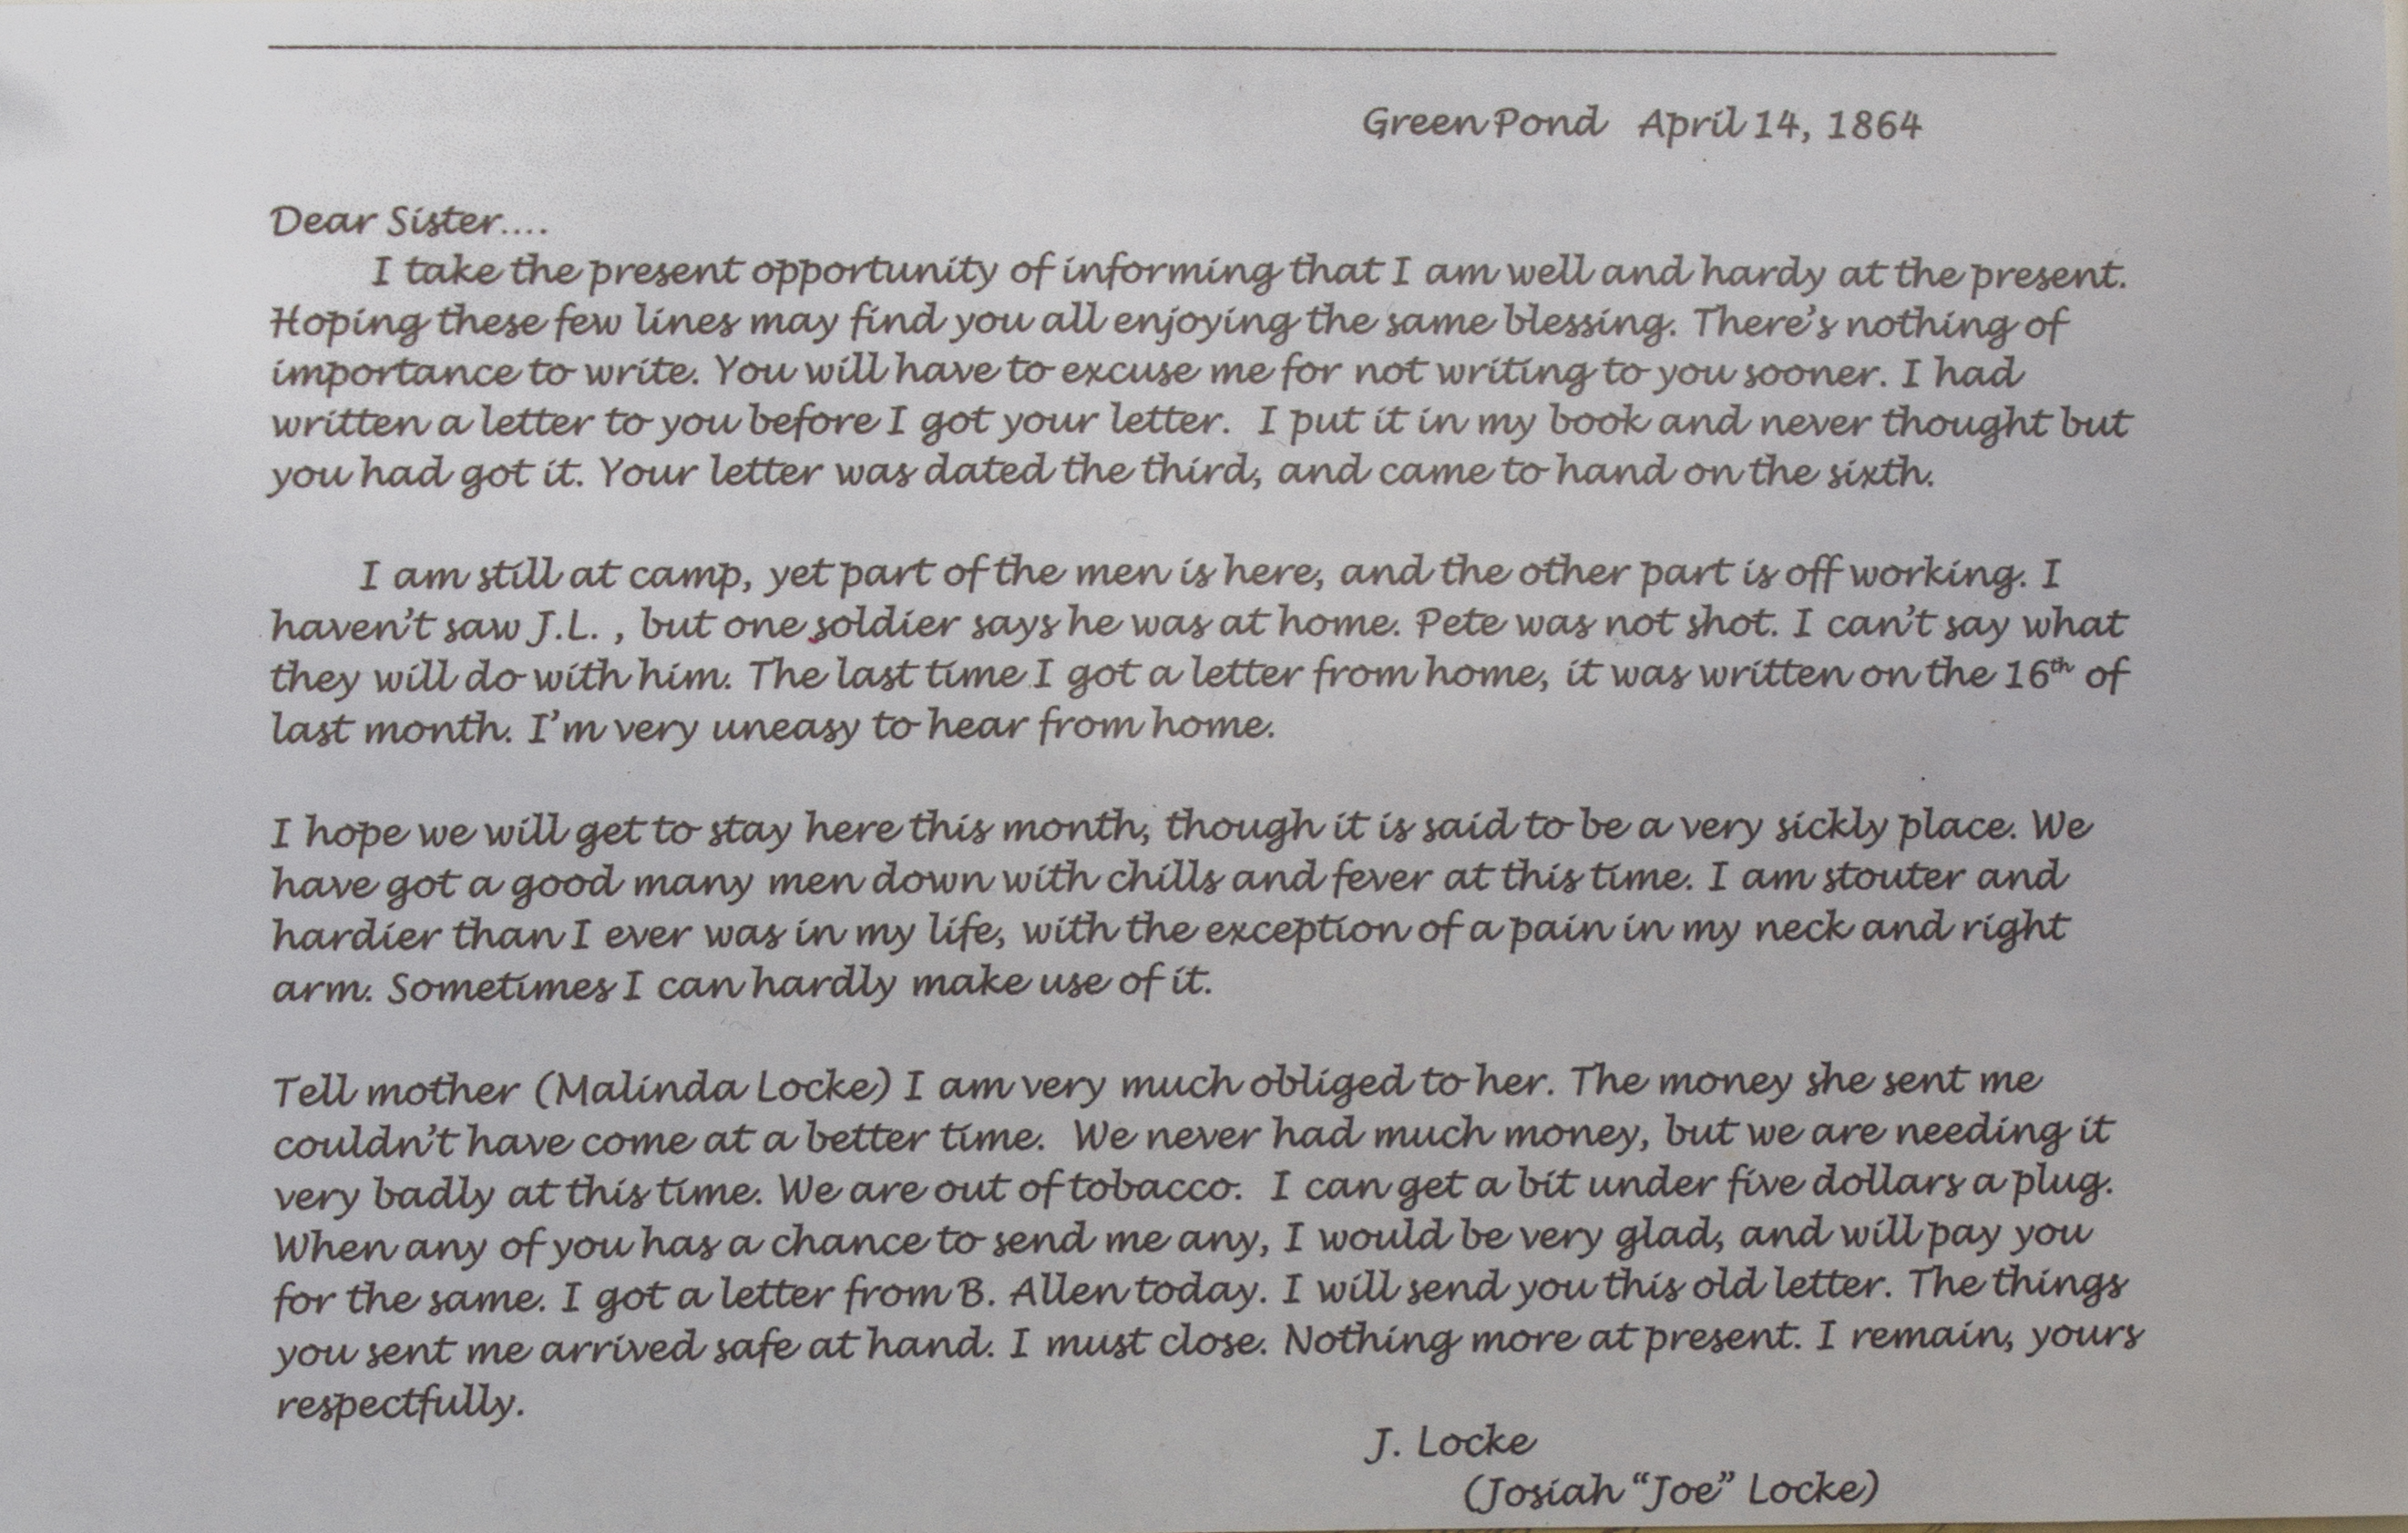 Green Pond April 14, 1864
Dear Sister....
I take the present opportunity of informing that I am well and hardy at the present.
Hoping these few lines may find you all enjoying the same blessing. There's nothing of
importance to write. You will have to excuse me for not writing to you sooner. I had
written a letter to you before I got your letter. I put it in my book and never thought but
you had got it. Your letter was dated the third, and came to hand on the sixth.
I am still at camp, yet part of the men is here, and the other part is off working. I
haven't saw J.L. , but one soldier says he was at home. Pete was not shot. I can't say what
they will do with him. The last time I got a letter from home, it was written on the 16th of
last month. I'm very uneasy to hear from home.
I hope we will get to stay here this month, though it is said to be a very sickly place. We
have got a good many men down with chills and fever at this time. I am stouter and
hardier than I ever was in my life, with the exception of a pain in my neck and right
arm. Sometimes I can hardly make use of it.
Tell mother (Malinda Locke) I am very much obliged to her. The money she sent me
couldn't have come at a better time. We never had much money, but we are needing it
very badly at this time. We are out of tobacco. I can get a bit under five dollars a plug.
When any of you has a chance to send me any, I would be very glad, and will pay you
for the same. I got a letter from B. Allen today. I will send you this old letter. The things
you sent me arrived safe at hand. I must close. Nothing more at present. I remain, yours
respectfully.
J. Locke
(Josiah "Joe" Locke)